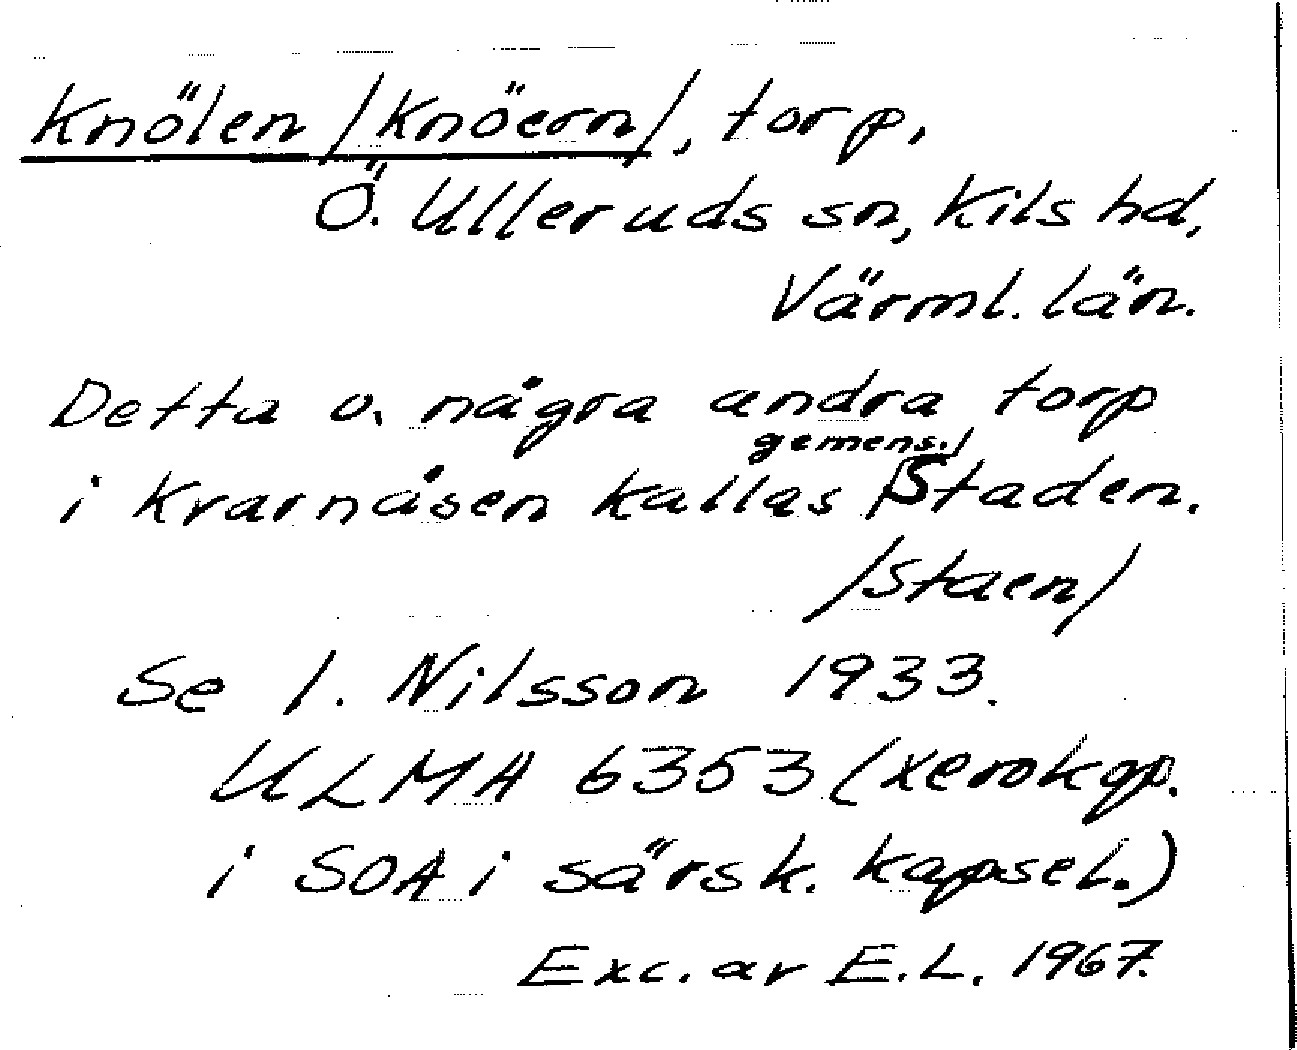 Knölen /Knöern/, torp,
Ö. Ulleruds sn, Kils hd,
Värml. län.
Detta o. några andra torp
i Kvarnåsen kallas gemens. Staden.
/Staen/
Se I. Nilsson 1933.
ULMA 6353 (xerokop.
i SOA i särsk. kapsel.)
Exc. av E.L. 1967.